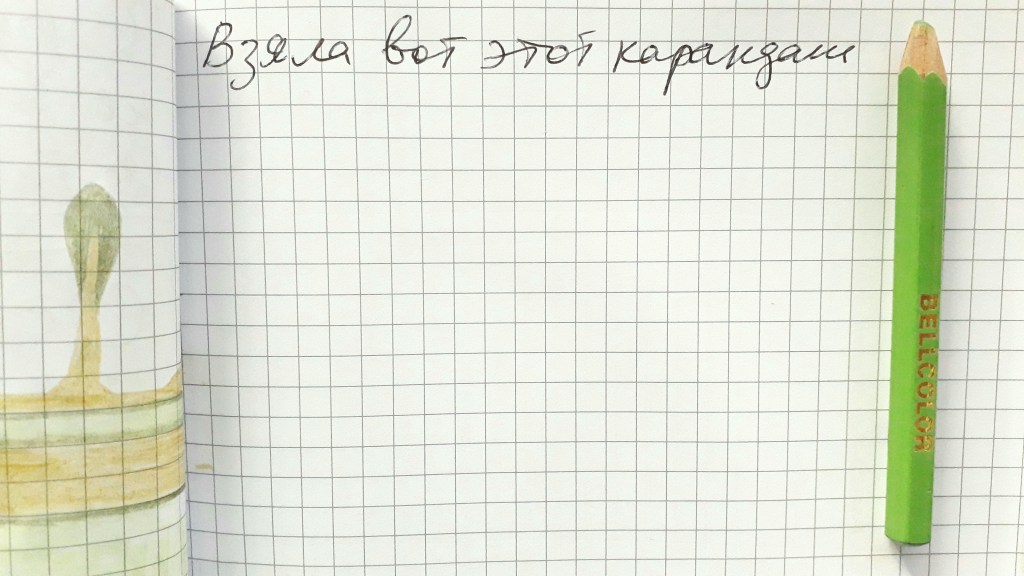 Взяла вот этот карандаш
BELLCOLOR